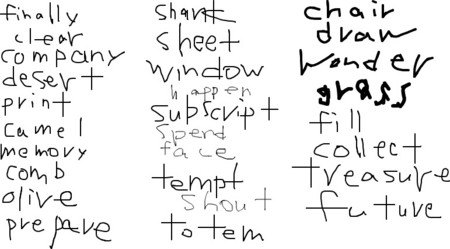 finally
clear
company
desert
print
camel
memory
comb
olive
prepare
sheet
window
happen
subscript
spend
face
tempt
shout
totem
chair
draw
wonder
grass
fill
collect
treasure
future